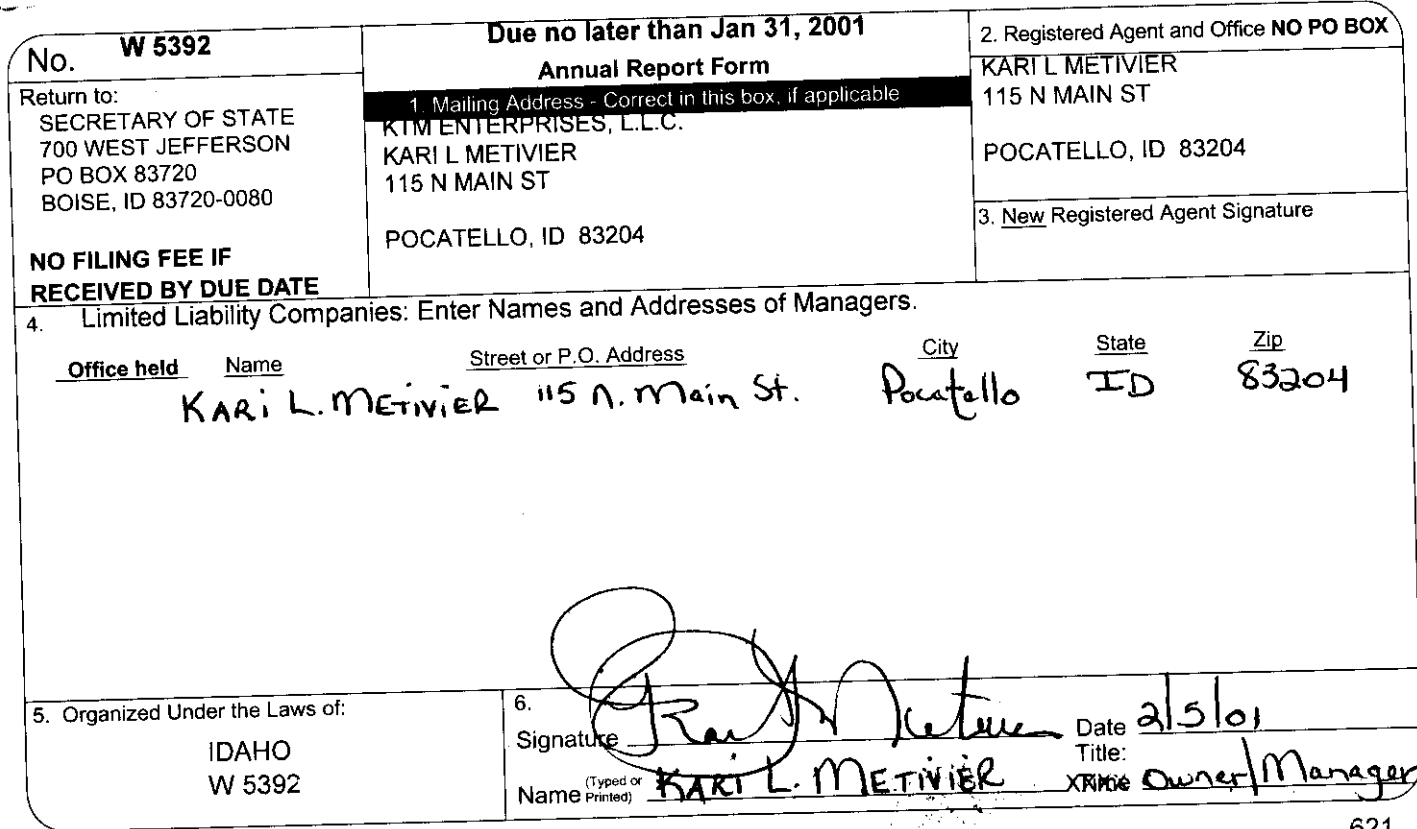 No. W 5392
Return to:
SECRETARY OF STATE
700 WEST JEFFERSON
PO BOX 83720
BOISE, ID 83720-0080
NO FILING FEE IF
RECEIVED BY DUE DATE
Due no later than Jan 31, 2001
Annual Report Form
1. Mailing Address - Correct in this box, if applicable
KTM ENTERPRISES, L.L.C.
KARI L METIVIER
115 N MAIN ST
POCATELLO, ID 83204
2. Registered Agent and Office NO PO BOX
KARI L METIVIER
115 N MAIN ST
POCATELLO, ID 83204
3. New Registered Agent Signature
4. Limited Liability Companies: Enter Names and Addresses of Managers.
Office held Name Street or P.O. Address City State Zip
KARi L. METIVIER 115 N. Main St. Pocatello ID 83204
5. Organized Under the Laws of:
IDAHO
W 5392
6.
Signature Kari L Metivier Date 2/5/01
Title:
Name (Typed or Printed) KARI L. METIVIER Owner/Manager
621